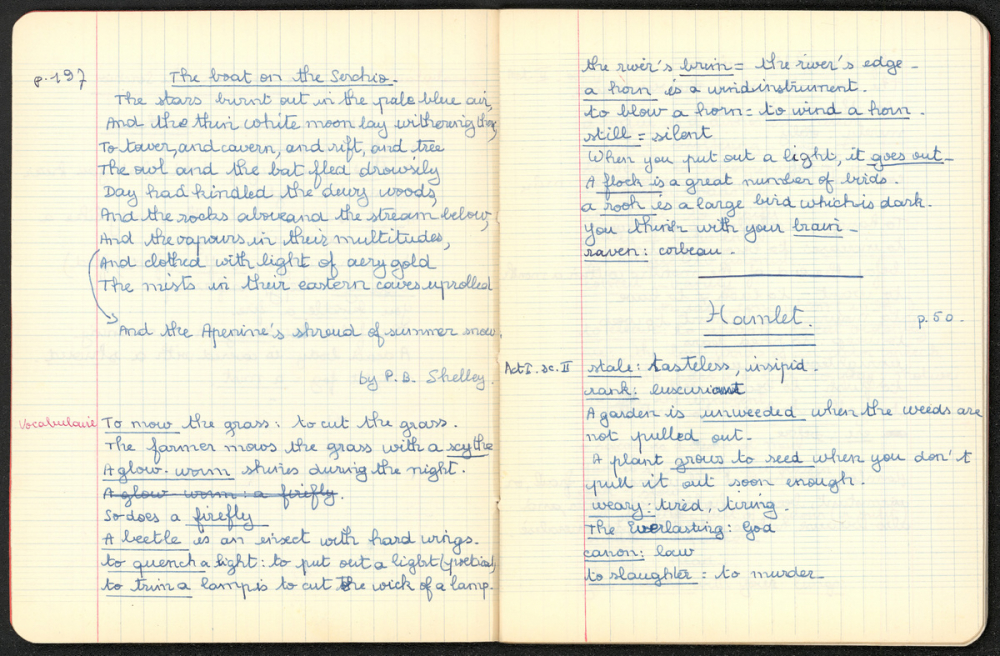 p.197
The boat on the Serchio.
The stars burnt out in the pale blue air,
And the thin white moon lay withering there,
To tower, and cavern, and rift, and tree
The owl and the bat fled drowsily
Day had kindled the dewy woods,
And the rocks above and the stream below,
And the vapours in their multitudes,
And clothed with light of aery gold
The mists in their eastern caves uprolled
And the Apenine's shroud of summer snow.
by P.B. Shelley.
Vocabulaire
To mow the grass: to cut the grass.
The farmer mows the grass with a scythe
A glow-worm shines during the night.
A glow-worm: a firefly.
So does a firefly
A beetle is an insect with hard wings.
to quench a light: to put out a light (poetical)
to trim a lamp is to cut the wick of a lamp.
the river's bruin = the river's edge -
a horn is a wind instrument.
to blow a horn = to wind a horn.
still = silent
When you put out a light, it goes out -
A flock is a great number of birds.
a rook is a large bird which is dark.
you think with your brain -
raven: corbeau.
Hamlet.
p.50.
Act I. sc. II
stale: tasteless, insipid.
rank: luxuriant
A garden is unweeded when the weeds are
not pulled out -
A plant grows to seed when you don't
pull it out soon enough.
weary: tired, tiring.
The Everlasting: God
canon: law
to slaughter = to murder -